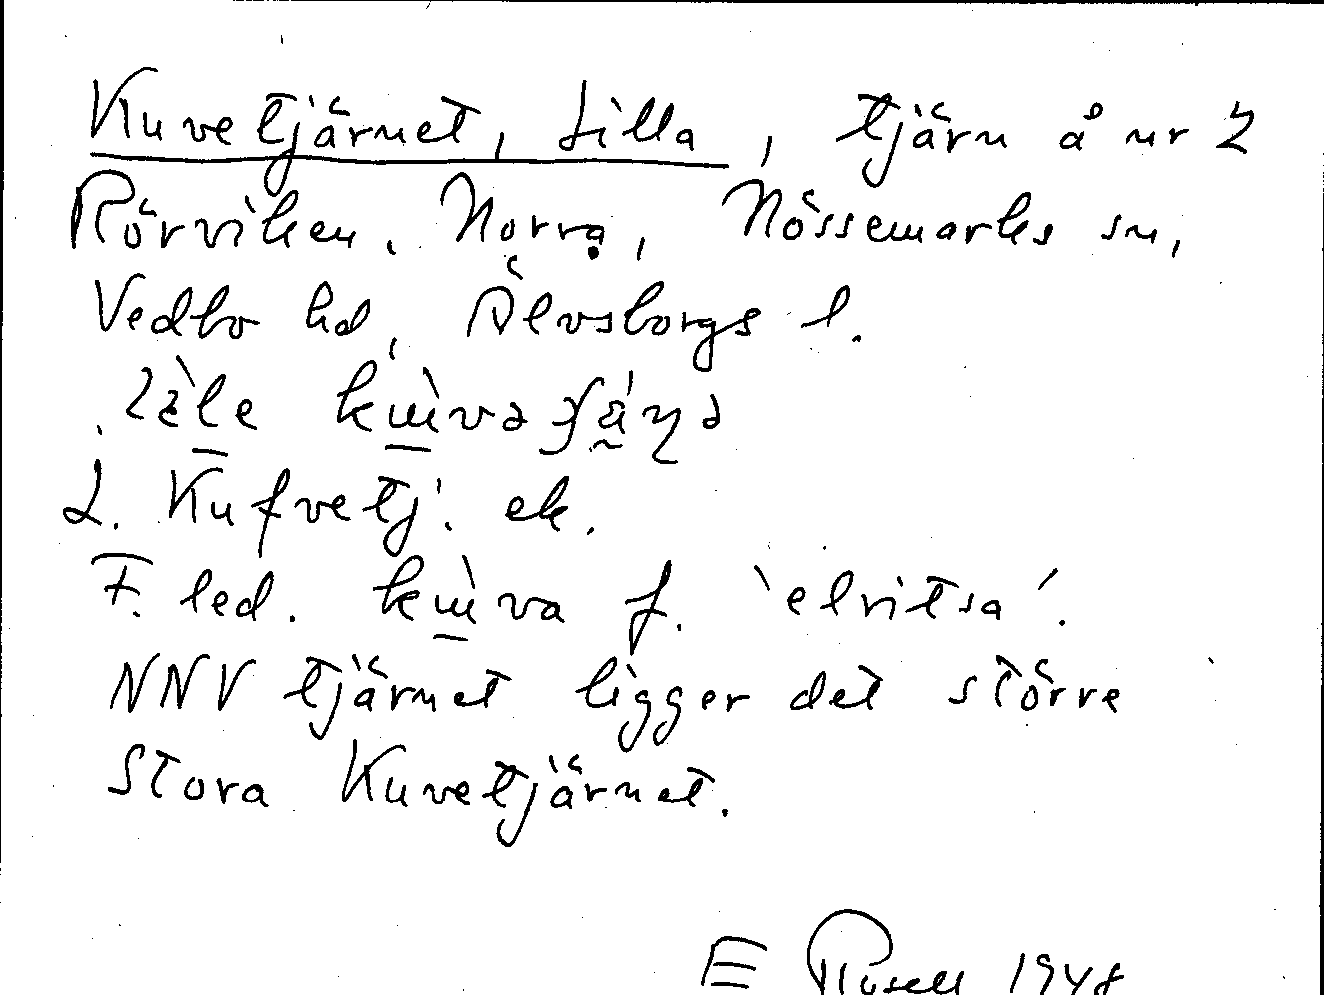 Kuvetjärnet, Lilla, tjärn å nr 2
Rörviken, Norra, Nössemarks sn,
Vedbo hd, Älvsborgs l.
L. Kufvetj. ek.
F. led. kɯ̀va f. 'elritsa'.
NNV tjärnet ligger det större
Stora Kuvetjärnet.
E Rosell 1948